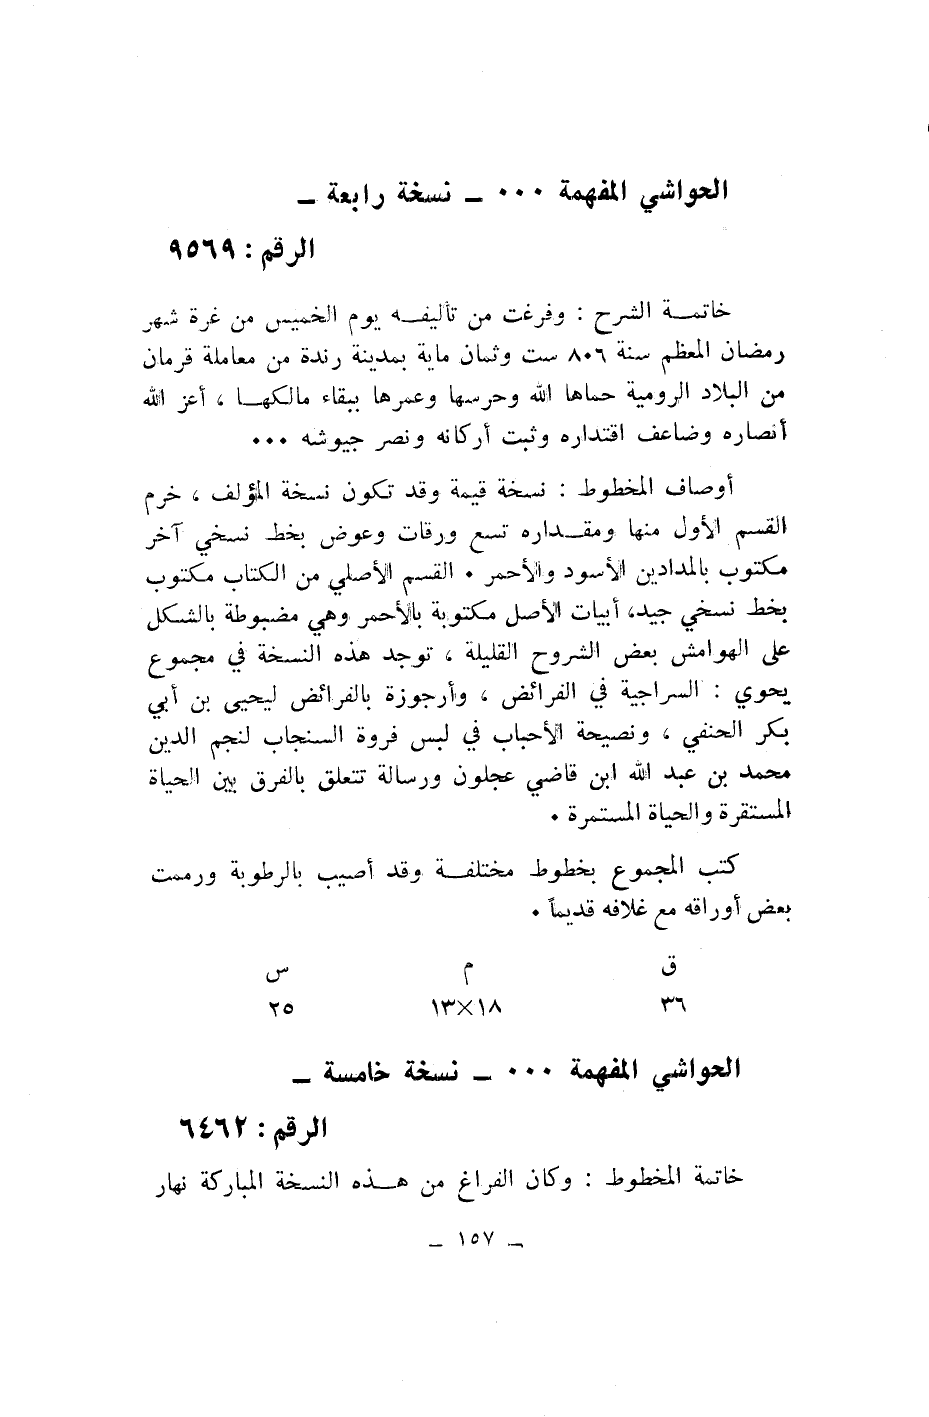 الحواشي المفهمة ٠٠٠ ـ نسخة رابعة ـ
الرقم : ٩٥٦٩
خاتمـــة الشرح : وفرغت من تأليفــه يوم الخميس من غرة شهر
رمضان المعظم سنة ٨٠٦ ست وثمان ماية بمدينة رندة من معاملة قرمان
من البلاد الرومية حماها الله وحرسها وعمرها ببقاء مالكهــا ، أعز الله
أنصاره وضاعف اقتداره وثبت أركانه ونصر جيوشه ٠٠٠
أوصاف المخطوط : نسخة قيمة وقد تكون نسخة المؤلف ، خرم
القسم الأول منها ومقــداره تسع ورقات وعوض بخط نسخي آخر
مكتوب بالمدادين الأسود والأحمر ٠ القسم الأصلي من الكتاب مكتوب
بخط نسخي جيد، أبيات الأصل مكتوبة بالأحمر وهي مضبوطة بالشكل
على الهوامش بعض الشروح القليلة ، توجد هذه النسخة في مجموع
يحوي : السراجية في الفرائض ، وأرجوزة بالفرائض ليحيى بن أبي
بكر الحنفي ، ونصيحة الأحباب في لبس فروة السنجاب لنجم الدين
محمد بن عبد الله ابن قاضي عجلون ورسالة تتعلق بالفرق بين الحياة
المستقرة والحياة المستمرة ٠
كتب المجموع بخطوط مختلفــة وقد أصيب بالرطوبة ورممت
بعض أوراقه مع غلافه قديماً ٠
ق م س
٣٦ ١٨×١٣ ٢٥
الحواشي المفهمة ٠٠٠ ـ نسخة خامسة ـ
الرقم : ٦٤٦٢
خاتمة المخطوط : وكان الفراغ من هــذه النسخة المباركة نهار
ـ ١٥٧ ـ